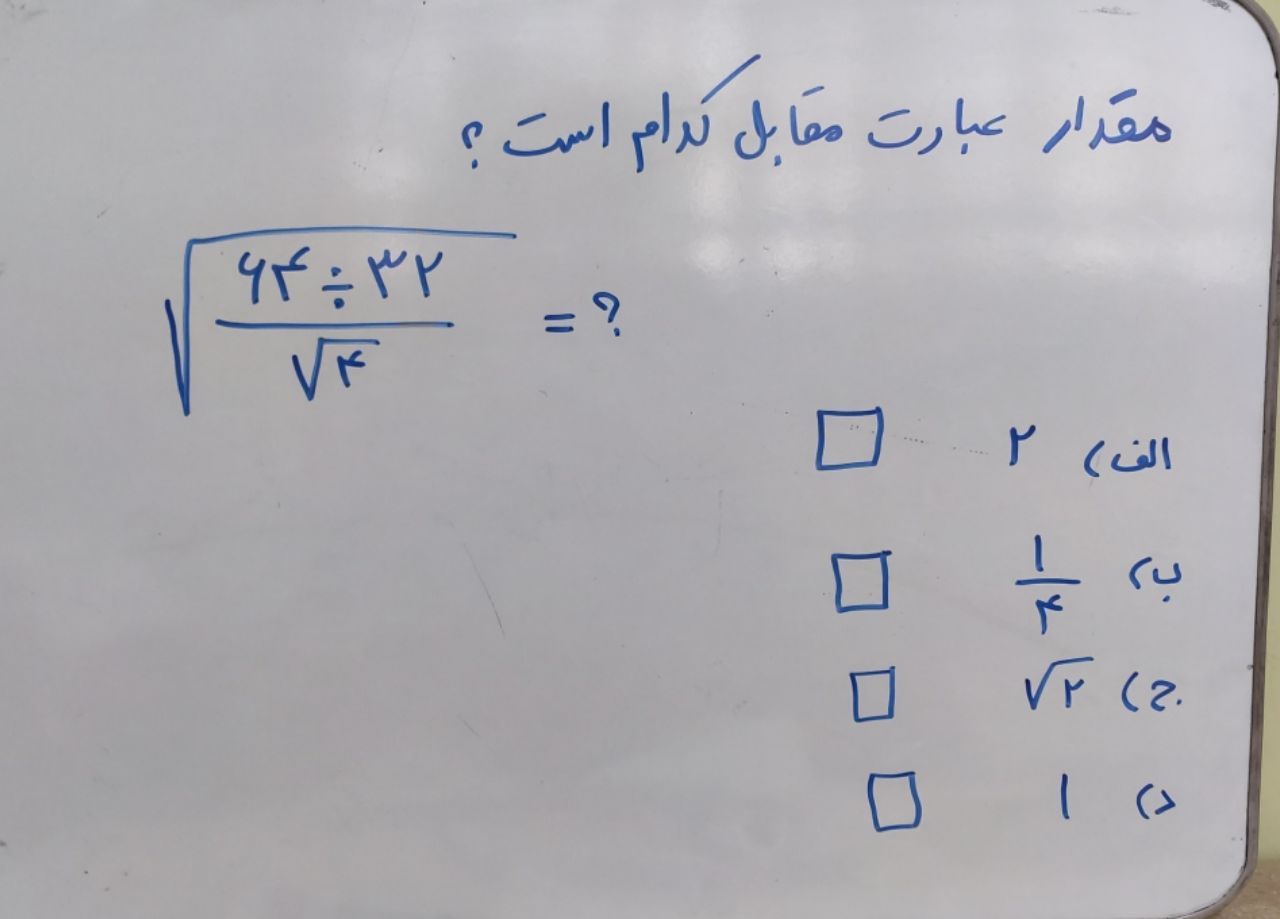 مقدار عبارت مقابل کدام است؟
√((۶۴ ÷ ۳۲) / √۴) = ?
الف) ۲ □
ب) ۱/۴ □
ج) √۲ □
د) ۱ □